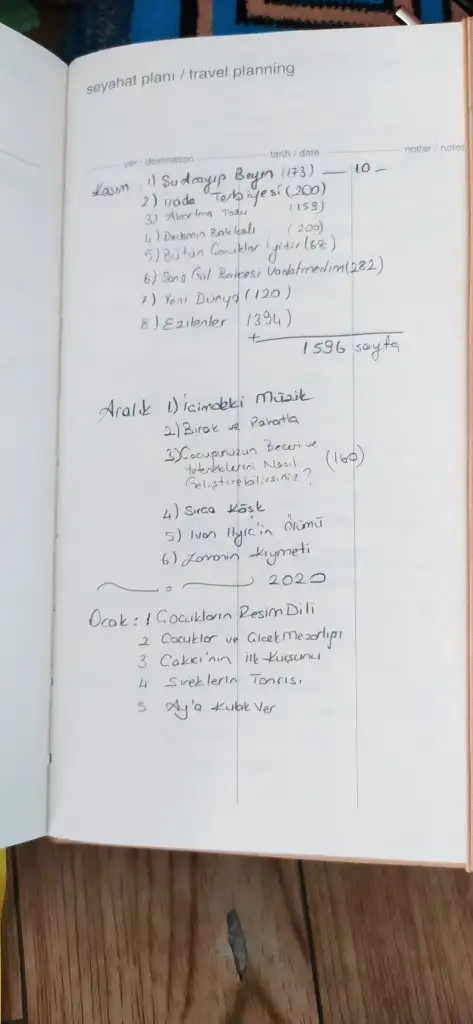 seyahat planı / travel planning
yer / destination tarih / date notlar / notes
Kasım 1) Su Arayıp Beyin (173) — 10 -
2) irade Terbiyesi (200)
3) Tadı (159)
4) Dedemin Bakkalı (200)
5) Bütün Çocuklar İyidir (68)
6) Sana Gül Bahçesi Vadetmedim (282)
7) Yeni Dünya (120)
8) Ezilenler (394)
+
1596 sayfa
Aralık 1) İçimdeki Müzik
2) Bırak ve Rahatla
3) Çocuğunuzun Beceri ve
Yeteneklerini Nasıl (160)
Geliştirebilirsiniz?
4) Sırça Köşk
5) Ivan Ilyiç'in Ölümü
6) Zamanın Kıymeti
2020
Ocak : 1 Çocukların Resim Dili
2 Çocuklar ve Çiçek Mezarlığı
3 Çakıcı'nın ilk Kurşunu
4 Sineklerin Tanrısı
5 Ay'a Kulak Ver